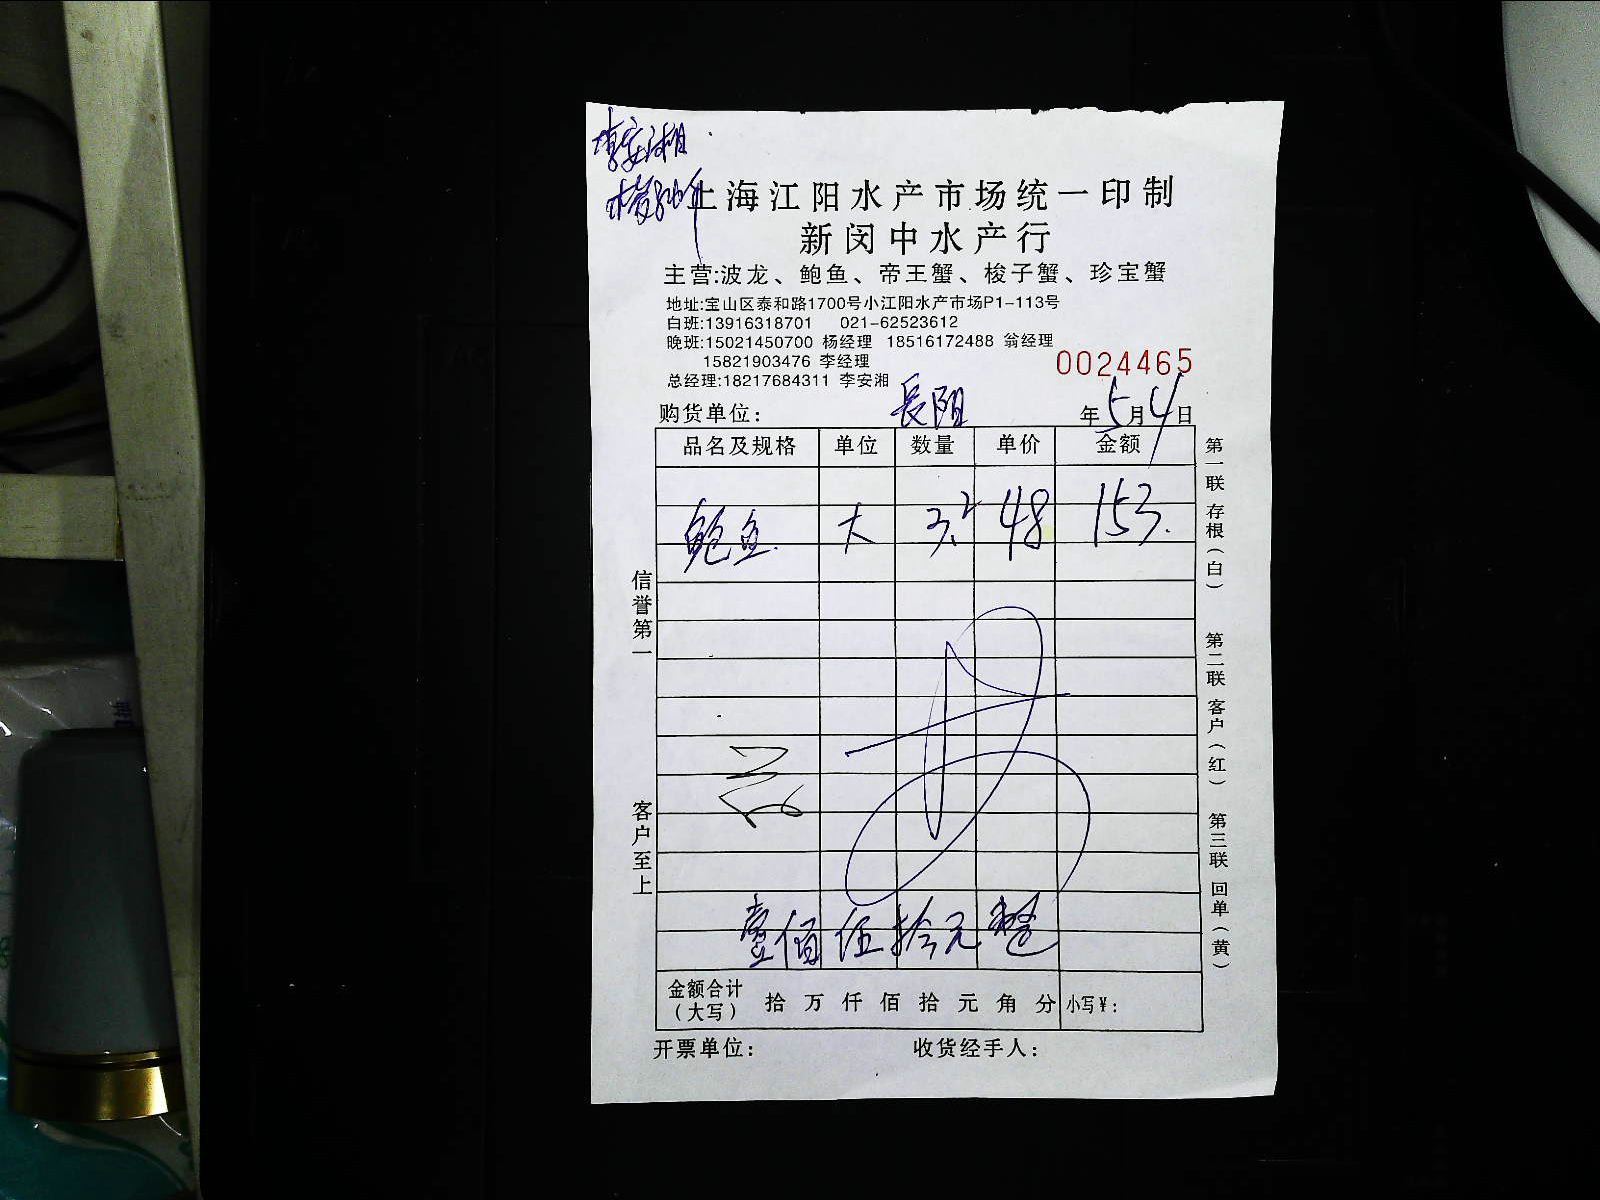 李安湘
上海江阳水产市场统一印制
新闵中水产行
主营:波龙、鲍鱼、帝王蟹、梭子蟹、珍宝蟹
地址:宝山区泰和路1700号小江阳水产市场P1-113号
白班:13916318701 021-62523612
晚班:15021450700 杨经理 18516172488 翁经理
15821903476 李经理
0024465
总经理:18217684311 李安湘
购货单位: 長阳 年5月4日
品名及规格 单位 数量 单价 金额
鲍鱼. 大 3.2 48 153.
壹佰伍拾元整
金额合计
(大写) 拾 万 仟 佰 拾 元 角 分 小写¥:
开票单位: 收货经手人:
信誉第一
客户至上
第一联 存根(白)
第二联 客户(红)
第三联 回单(黄)